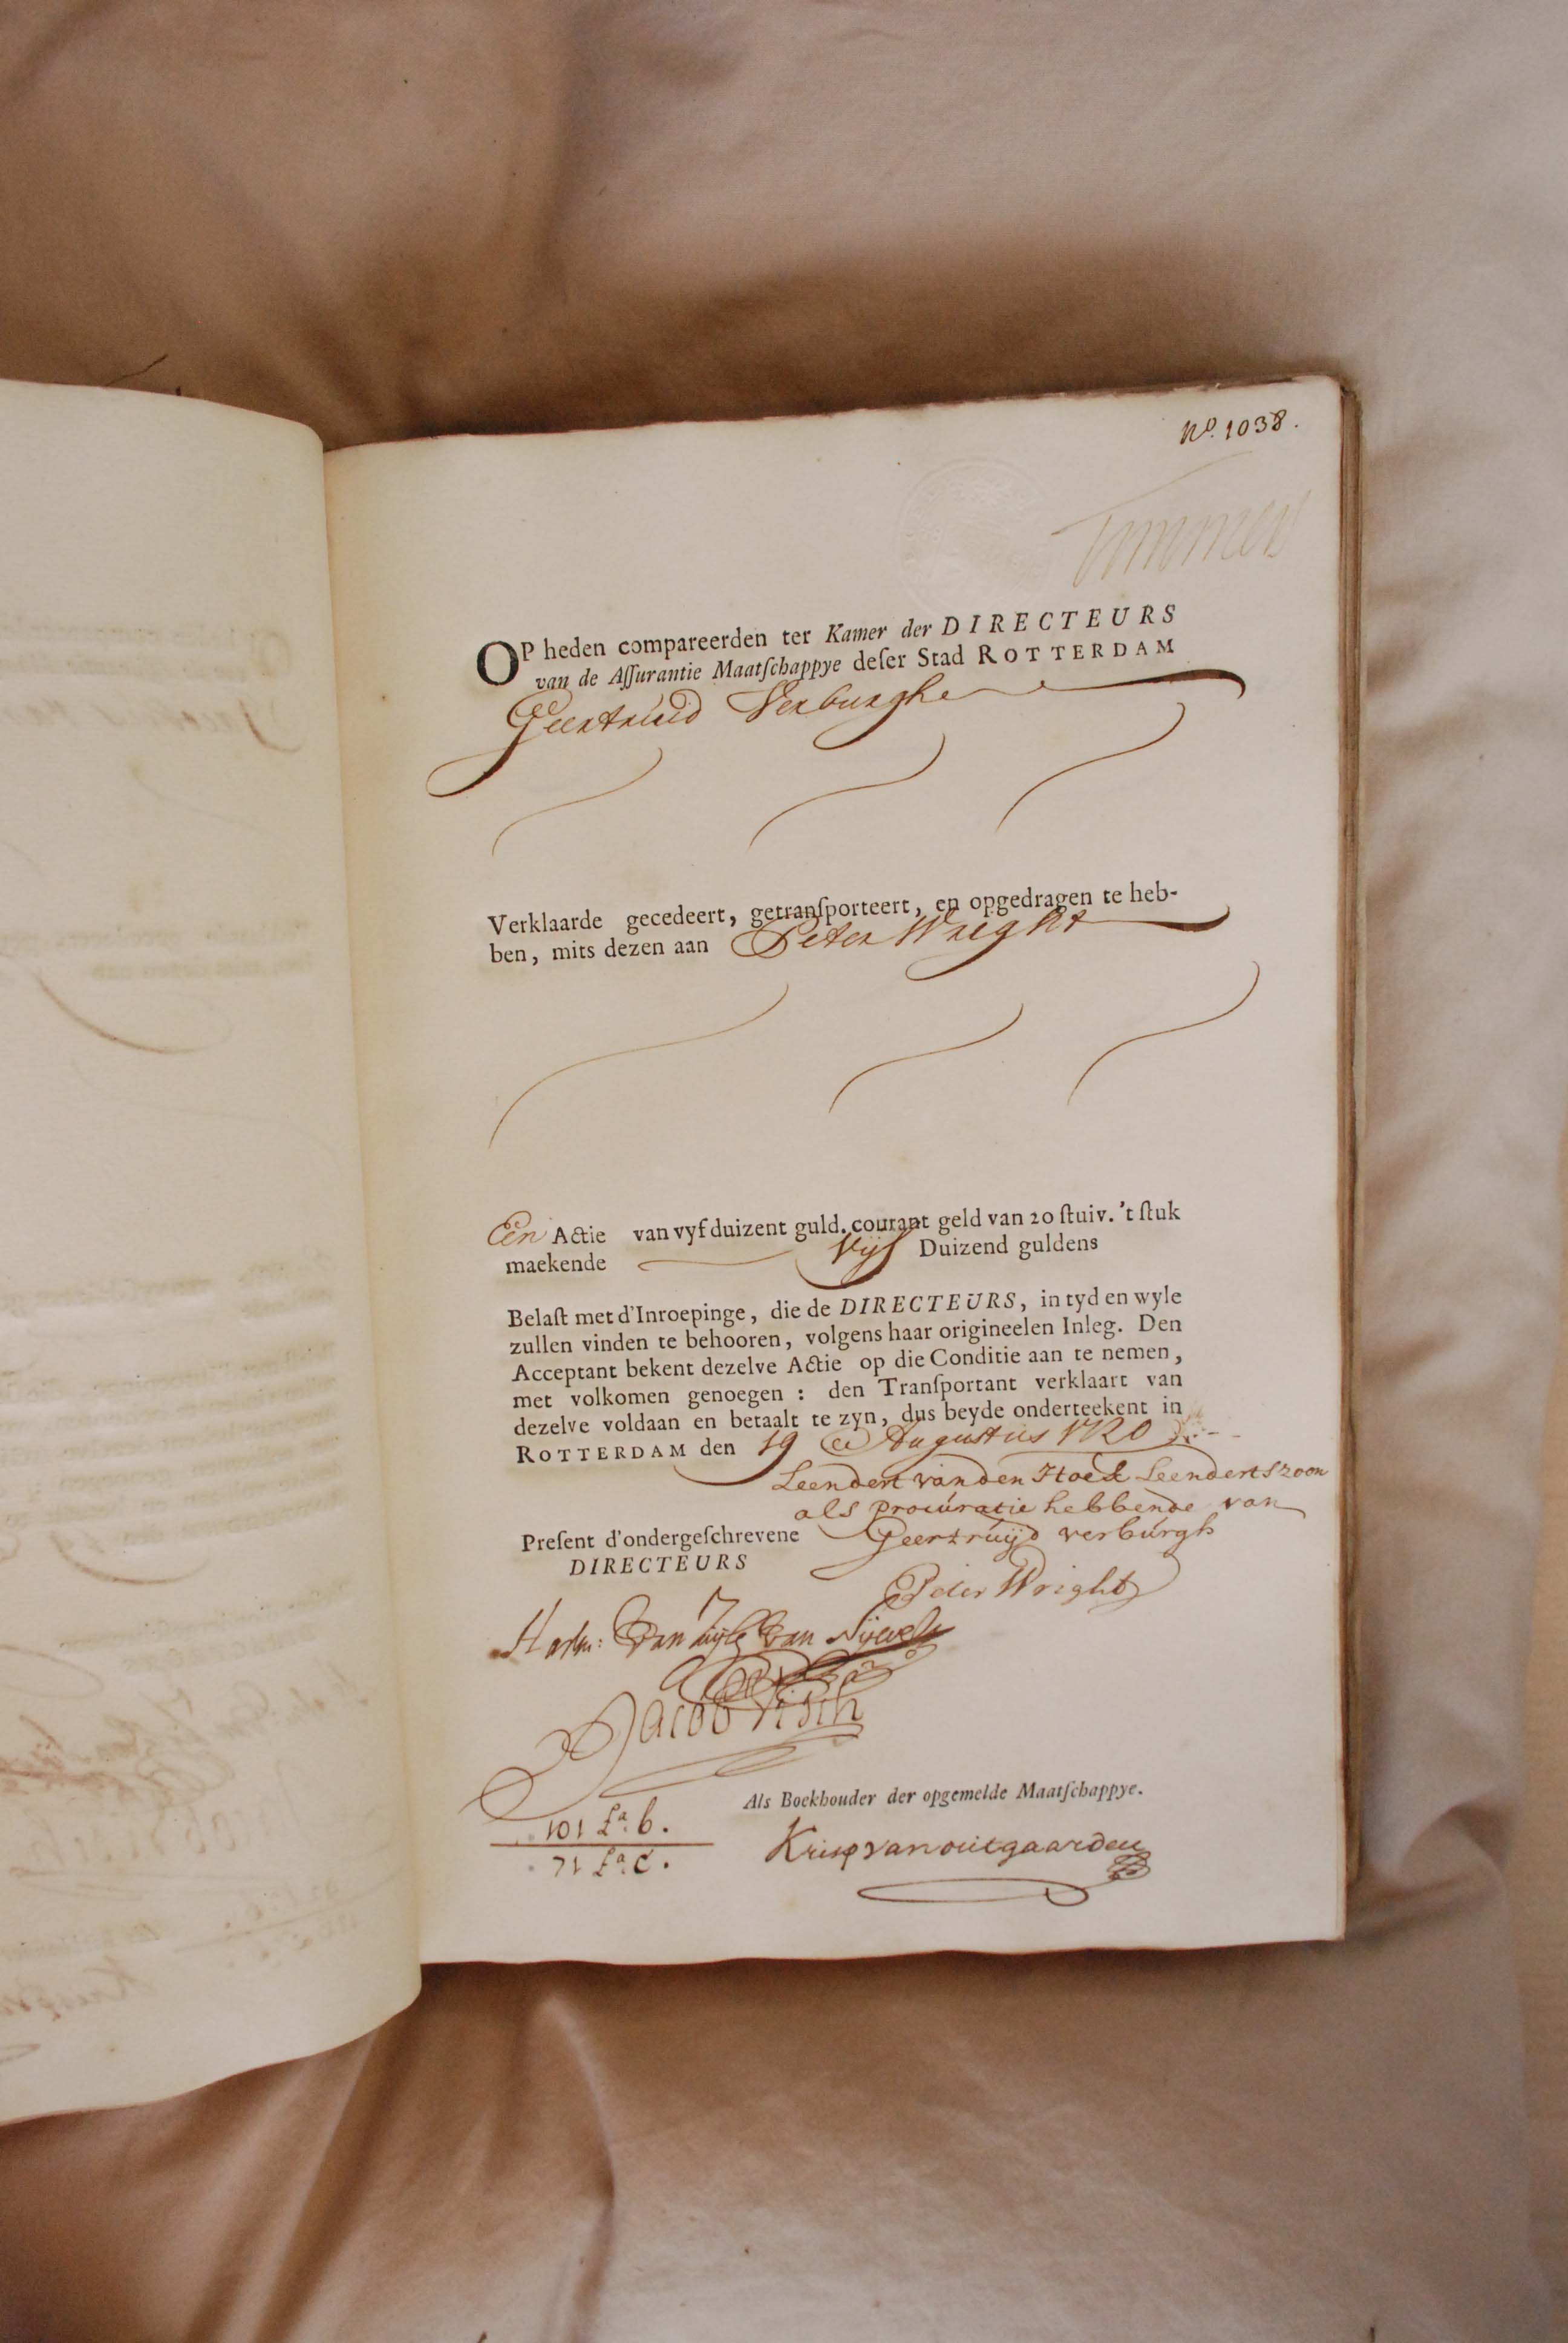 No. 1038.
OP heden compareerden ter Kamer der DIRECTEURS
van de Aſſurantie Maatſchappye deſer Stad ROTTERDAM
Geertruid Verburghe
Verklaarde gecedeert, getranſporteert, en opgedragen te heb-
ben, mits dezen aan Peter Wright
Een Actie van vyf duizent guld. courant geld van 20 ſtuiv. 't ſtuk
maekende vijf Duizend guldens
Belaſt met d'Inroepinge, die de DIRECTEURS, in tyd en wyle
zullen vinden te behooren, volgens haar origineelen Inleg. Den
Acceptant bekent dezelve Actie op die Conditie aan te nemen,
met volkomen genoegen : den Tranſportant verklaart van
dezelve voldaan en betaalt te zyn, dus beyde onderteekent in
ROTTERDAM den 19 e Augustus 1720
Leendert van den Hoek Leendertszoon
als procuratie hebbende van
Geertruijd verburgh
Preſent d'ondergeſchrevene
DIRECTEURS
Peter Wright
van Zuijlen van Nijevelt
Jacob Visch
Als Boekhouder der opgemelde Maatſchappye.
101 La. b.
71 La. C.
Krisp van outgaarden